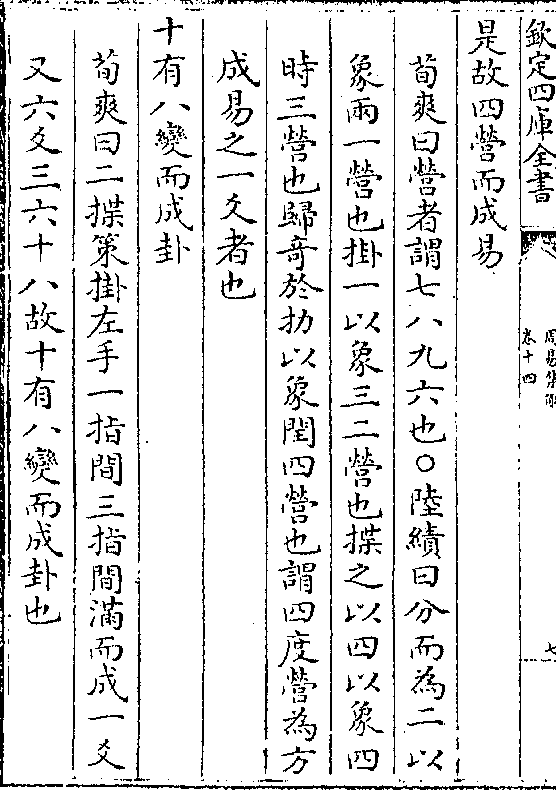 欽定四庫全書
周易集解
卷十四
七
是故四營而成易
荀爽曰營者謂七八九六也○陸績曰分而為二以
象兩一營也掛一以象三二營也揲之以四以象四
時三營也歸奇於扐以象閏四營也謂四度營為方
成易之一爻者也
十有八變而成卦
荀爽曰二揲策掛左手一指間三指間滿而成一爻
又六爻三六十八故十有八變而成卦也